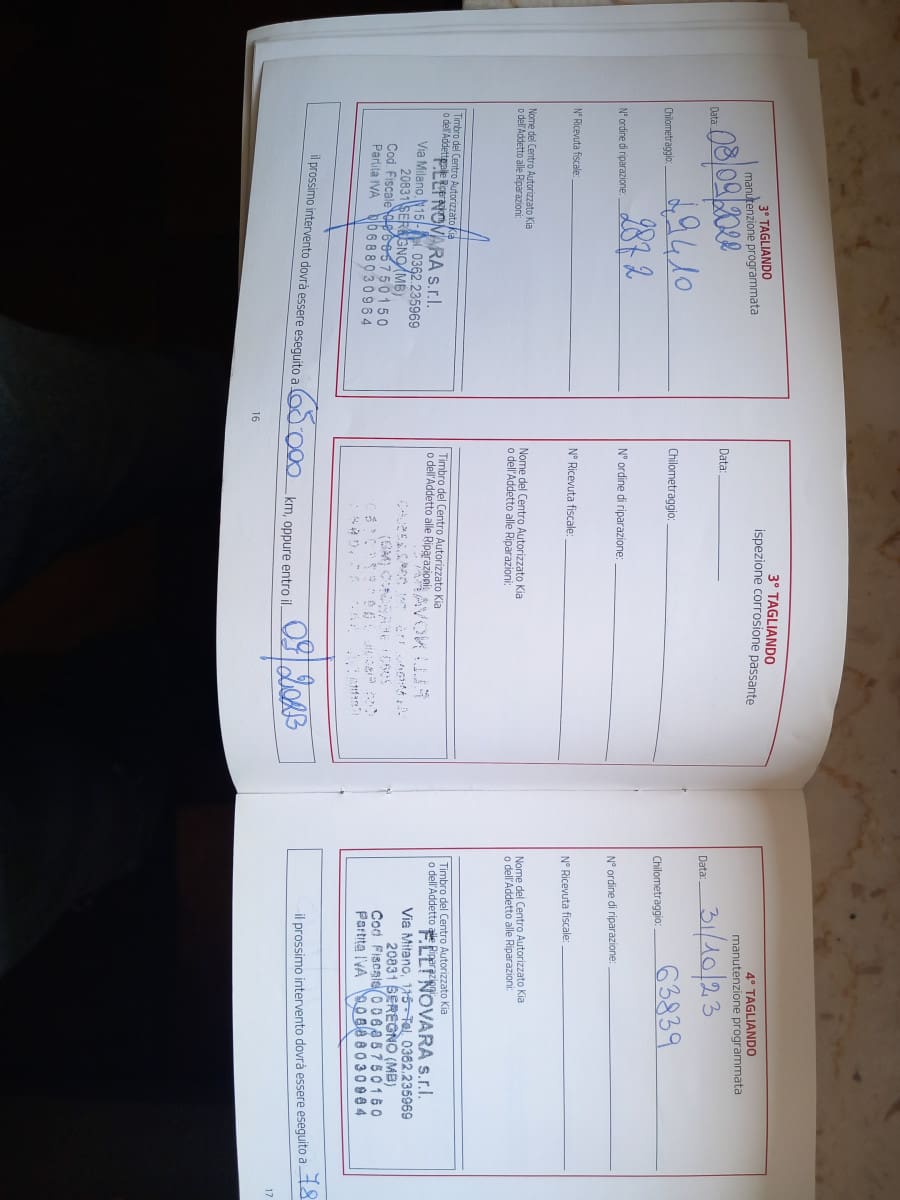 3° TAGLIANDO
manutenzione programmata
Data: 08/09/2022
Chilometraggio: 49410
2872
N° ordine di riparazione:
N° Ricevuta fiscale:
Nome del Centro Autorizzato Kia
o dell'Addetto alle Riparazioni:
Timbro del Centro Autorizzato Kia
o dell'Addetto alle Riparazioni:
F.LLI NOVARA s.r.l.
Via Milano, 115 - Tel. 0362.235969
20831 SEREGNO (MB)
Cod. Fiscale 00685750150
Partita IVA 00688030964
3° TAGLIANDO
ispezione corrosione passante
Data:
Chilometraggio:
N° ordine di riparazione:
N° Ricevuta fiscale:
Nome del Centro Autorizzato Kia
o dell'Addetto alle Riparazioni:
Timbro del Centro Autorizzato Kia
o dell'Addetto alle Riparazioni:
il prossimo intervento dovrà essere eseguito a 65000 km, oppure entro il 09/2023
16
4° TAGLIANDO
manutenzione programmata
Data: 31/10/23
Chilometraggio: 63839
N° ordine di riparazione:
N° Ricevuta fiscale:
Nome del Centro Autorizzato Kia
o dell'Addetto alle Riparazioni:
Timbro del Centro Autorizzato Kia
o dell'Addetto alle Riparazioni:
F.LLI NOVARA s.r.l.
Via Milano, 115 - Tel. 0362.235969
20831 SEREGNO (MB)
Cod. Fiscale 00685750150
Partita IVA 00688030964
il prossimo intervento dovrà essere eseguito a 78
17